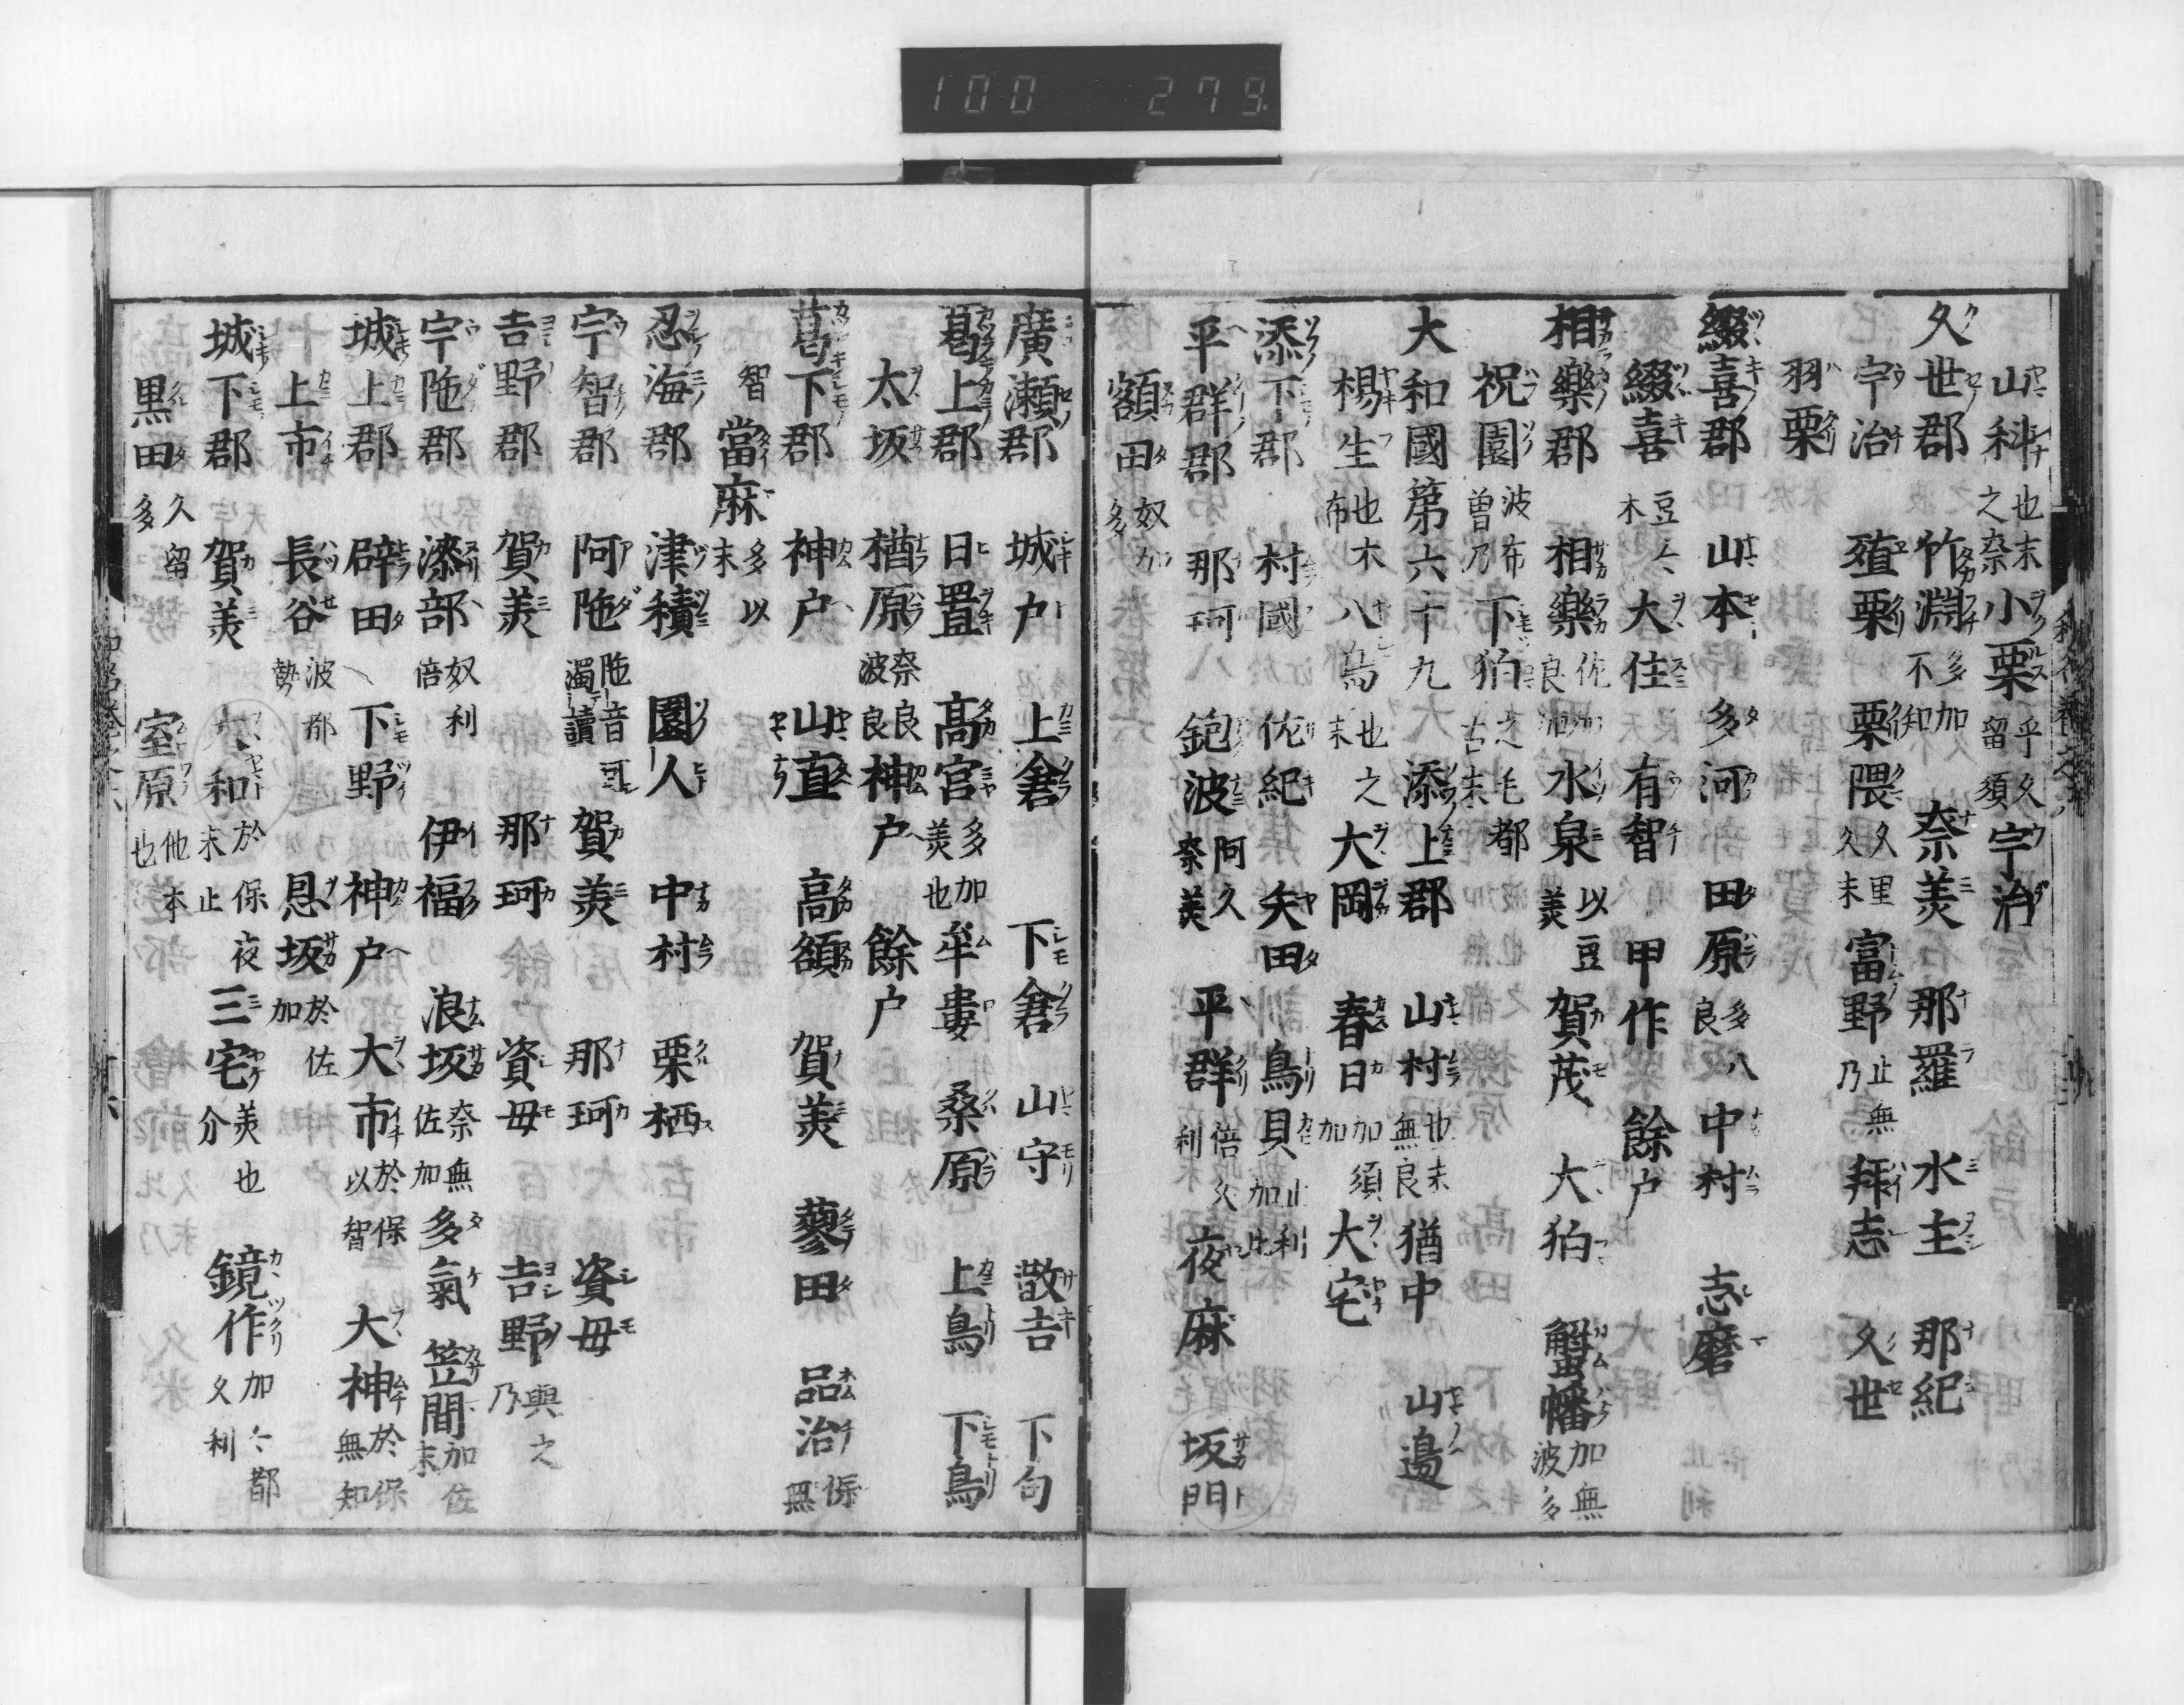 100 279
山科 也末之奈 小栗 乎久留須 宇治
久世郡 竹淵 多加不知 奈美 那羅 水主 那紀
宇治 殖栗 栗隈 久里久末 富野 止無乃 拜志 久世
羽栗
綴喜郡 山本 多河 田原 多八良 中村 志磨
綴喜 豆々木 大住 有智 甲作 餘戸
相樂郡 相樂 佐加良加 水泉 以豆美 賀茂 大狛 蟹幡 加無波多
祝園 波布曽乃 下狛 之毛都古末
大和國第六十九 添上郡 山村 也末無良 猶中 山邊
楊生 也木布 八島 也之末 大岡 春日 加須加 大宅
添下郡 村國 佐紀 矢田 鳥貝 止利加比
平群郡 那珂 鉋波 阿久奈美 平群 倍久利 夜麻 坂門
額田 奴加多
廣瀬郡 城戸 上倉 下倉 山守 散吉 下勾
葛上郡 日置 高宮 多加美也 牟婁 桑原 上鳥 下鳥
太坂 楢原 奈良波良 神戸 餘戸
葛下郡 神戸 山直 高額 賀美 蓼田 品治 保無
智 當麻 多以末
忍海郡 津積 園人 中村 栗栖
宇智郡 阿陁 陁音可濁讀 賀美 那珂 資母
吉野郡 賀美 那珂 資母 吉野 與之乃
宇陁郡 漆部 奴利倍 伊福 浪坂 奈無佐加 多氣 笠間 加佐末
城上郡 辟田 下野 神戸 大市 於保以智 大神 於保無知
上市 長谷 波都勢 忍坂 於佐加
城下郡 賀美 大和 於保夜末止 三宅 美也介 鏡作 加々都久利
黒田 久留多 室原 也他本